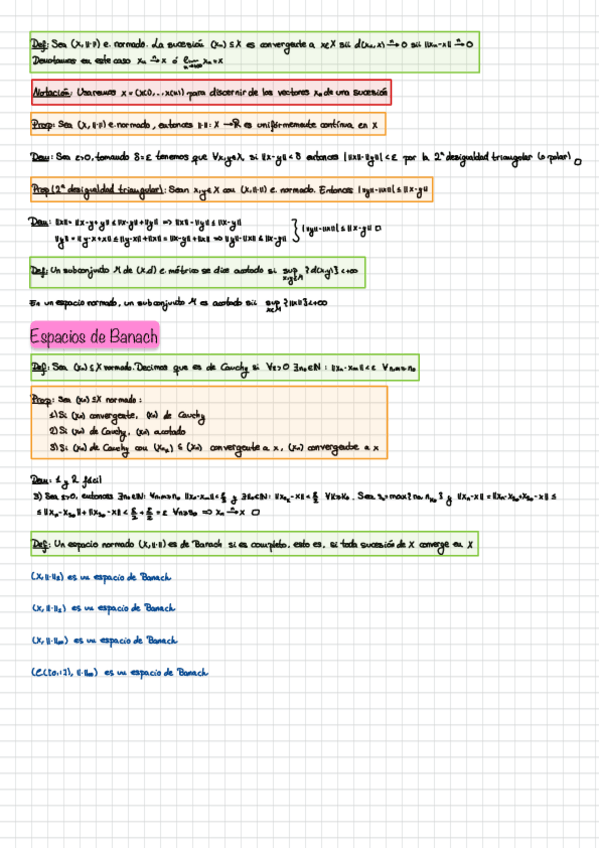 Def: Sea (X, ||·||) e. normado. La sucesión (xₙ) ⊆ X es convergente a x∈X sii d(xₙ,x) →ⁿ 0 sii ||xₙ-x|| →ⁿ 0
Denotamos en este caso xₙ →ⁿ x ó lim xₙ = x
Notación: Usaremos x = (x(1),...x(n)) para discernir de los vectores xₙ de una sucesión
Prop: Sea (X, ||·||) e. normado, entonces ||·||: X → R es uniformemente continua en X
Dem: Sea ε>0, tomando δ=ε tenemos que ∀x,y∈X, si ||x-y|| < δ entonces | ||x||-||y|| | < ε por la 2ª desigualdad triangular (o polar) □
Prop (2ª desigualdad triangular): Sean x,y∈X con (X, ||·||) e. normado. Entonces | ||y||-||x|| | ≤ ||x-y||
Dem: ||x|| = ||x-y+y|| ≤ ||x-y||+||y|| => ||x||-||y|| ≤ ||x-y||
||y|| = ||y-x+x|| ≤ ||y-x||+||x|| = ||x-y||+||x|| => ||y||-||x|| ≤ ||x-y|| } | ||y||-||x|| | ≤ ||x-y|| □
Def: Un subconjunto M de (X,d) e. métrico se dice acotado si sup x,y∈M {d(x,y)} < +∞
En un espacio normado, un subconjunto M es acotado sii sup x∈M {||x||} < +∞
Espacios de Banach
Def: Sea (xₙ) ⊆ X normado. Decimos que es de Cauchy si ∀ε>0 ∃n₀∈N : ||xₙ-xₘ|| < ε ∀n,m≥n₀
Prop: Sea (xₙ) ⊆ X normado:
1) Si (xₙ) convergente, (xₙ) de Cauchy
2) Si (xₙ) de Cauchy, (xₙ) acotado
3) Si (xₙ) de Cauchy con (xₙₖ) ⊆ (xₙ) convergente a x, (xₙ) convergente a x
Dem: 1 y 2 fácil
Def: Un espacio normado (X, ||·||) es de Banach si es completo, esto es, si toda sucesión de X converge en X
es un espacio de Banach
es un espacio de Banach
(X, ||·||∞) es un espacio de Banach
(C([0,1]), ||·||∞) es un espacio de Banach